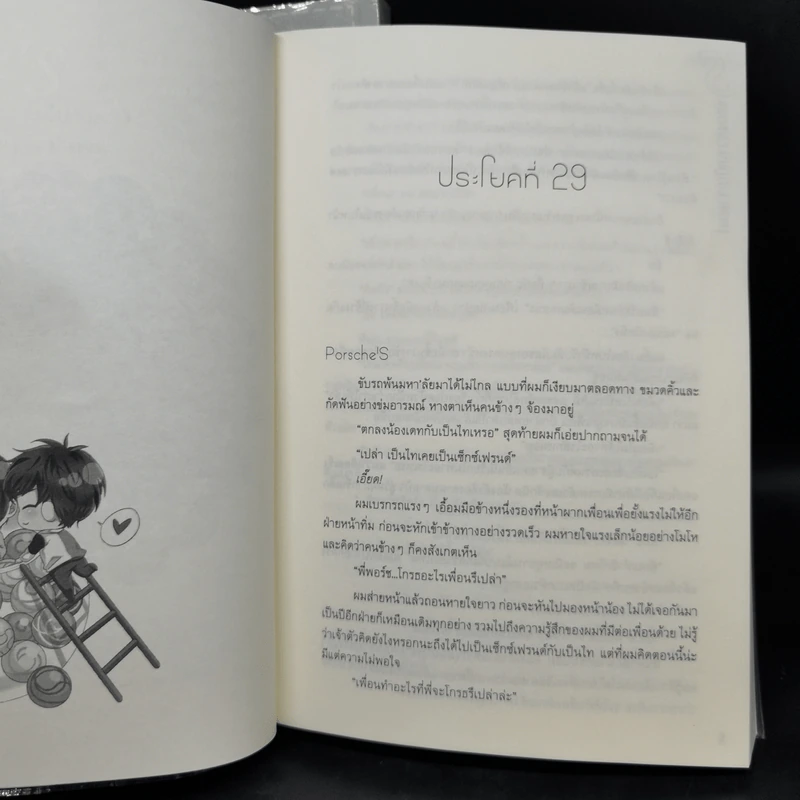 ประโยคที่ 29
Porsche'S
ขับรถพ้นมหา'ลัยมาได้ไม่ไกล แบบที่ผมก็เงียบมาตลอดทาง ขมวดคิ้วและ
กัดฟันอย่างข่มอารมณ์ หางตาเห็นคนข้างๆ จ้องมาอยู่
“ตกลงน้องเดทกับเป็นไทเหรอ” สุดท้ายผมก็เอ่ยปากถามจนได้
“เปล่า เป็นไทเคยเป็นเซ็กซ์เฟรนด์”
เอี๊ยด!
ผมเบรกรถแรงๆ เอื้อมมือข้างหนึ่งรองที่หน้าผากเพื่อนเพื่อยั้งแรงไม่ให้อีก
ฝ่ายหน้าทิ่ม ก่อนจะหักเข้าข้างทางอย่างรวดเร็ว ผมหายใจแรงเล็กน้อยอย่างโมโห
และคิดว่าคนข้างๆ ก็คงสังเกตเห็น
“พี่พอร์ช...โกรธอะไรเพื่อนรึเปล่า”
ผมส่ายหน้าแล้วถอนหายใจยาว ก่อนจะหันไปมองหน้าน้อง ไม่ได้เจอกันมา
เป็นปีอีกฝ่ายก็เหมือนเดิมทุกอย่าง รวมไปถึงความรู้สึกของผมที่มีต่อเพื่อนด้วย ไม่รู้
ว่าเจ้าตัวคิดยังไงหรอกนะถึงได้ไปเป็นเซ็กซ์เฟรนด์กับเป็นไท แต่ที่ผมคิดตอนนี้น่ะ
มีแต่ความไม่พอใจ
“เพื่อนทำอะไรที่พี่จะโกรธรึเปล่าล่ะ”